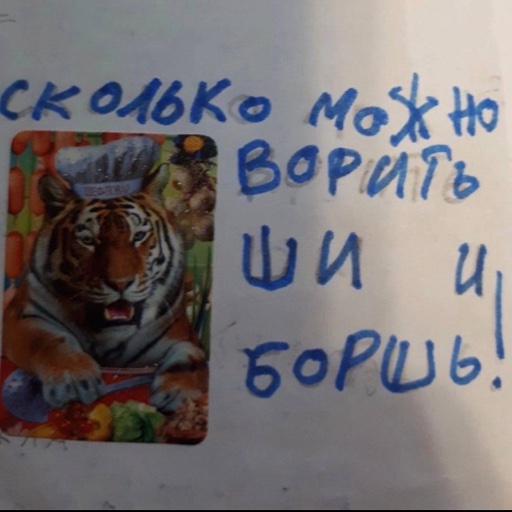 сколько можно
ворить
ши и
боршь!